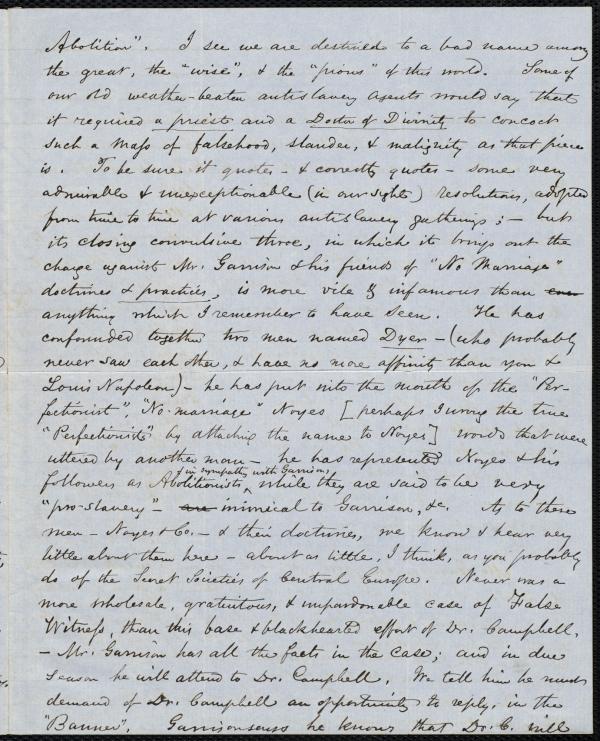 Abolition". I see we are destined to a bad name among
the great, the "wise", & the "pious" of this world. Some of
our old weather-beaten antislavery agents would say that
it required a priest and a Doctor of Divinity to concoct
such a mass of falsehood, slander, & malignity as that piece
is. To be sure it quotes - & correctly quotes - some very
admirable & unexceptionable (in our sight) resolutions, adopted
from time to time at various antislavery gatherings; - but
its closing convulsive throe, in which it brings out the
charge against Mr. Garrison & his friends of "No Marriage"
doctrines & practices, is more vile & infamous than ever
anything which I remember to have seen. He has
confounded together two men named Dyer - (who probably
never saw each other, & have no more affinity than you &
Louis Napoleon) - he has put into the mouth of the "Per-
fectionist", "No-marriage" Noyes [perhaps I wrong the true
"Perfectionists" by attaching the name to Noyes] words that were
uttered by another man - he has represented Noyes & his
& in sympathy with Garrison,
followers as Abolitionists, while they are said to be very
"pro-slavery" - are inimical to Garrison, &c. As to these
men - Noyes & Co. - & their doctrines, we know & hear very
little about them here - about as little, I think, as you probably
do of the Secret Societies of Central Europe. Never was a
more wholesale, gratuitous, & unpardonable case of False
Witness, than this base & blackhearted effort of Dr. Campbell.
- Mr. Garrison has all the facts in the case; and in due
season he will attend to Dr. Campbell. We tell him he must
demand of Dr. Campbell an opportunity to reply, in the
"Banner". Garrison says he knows that Dr. C. will